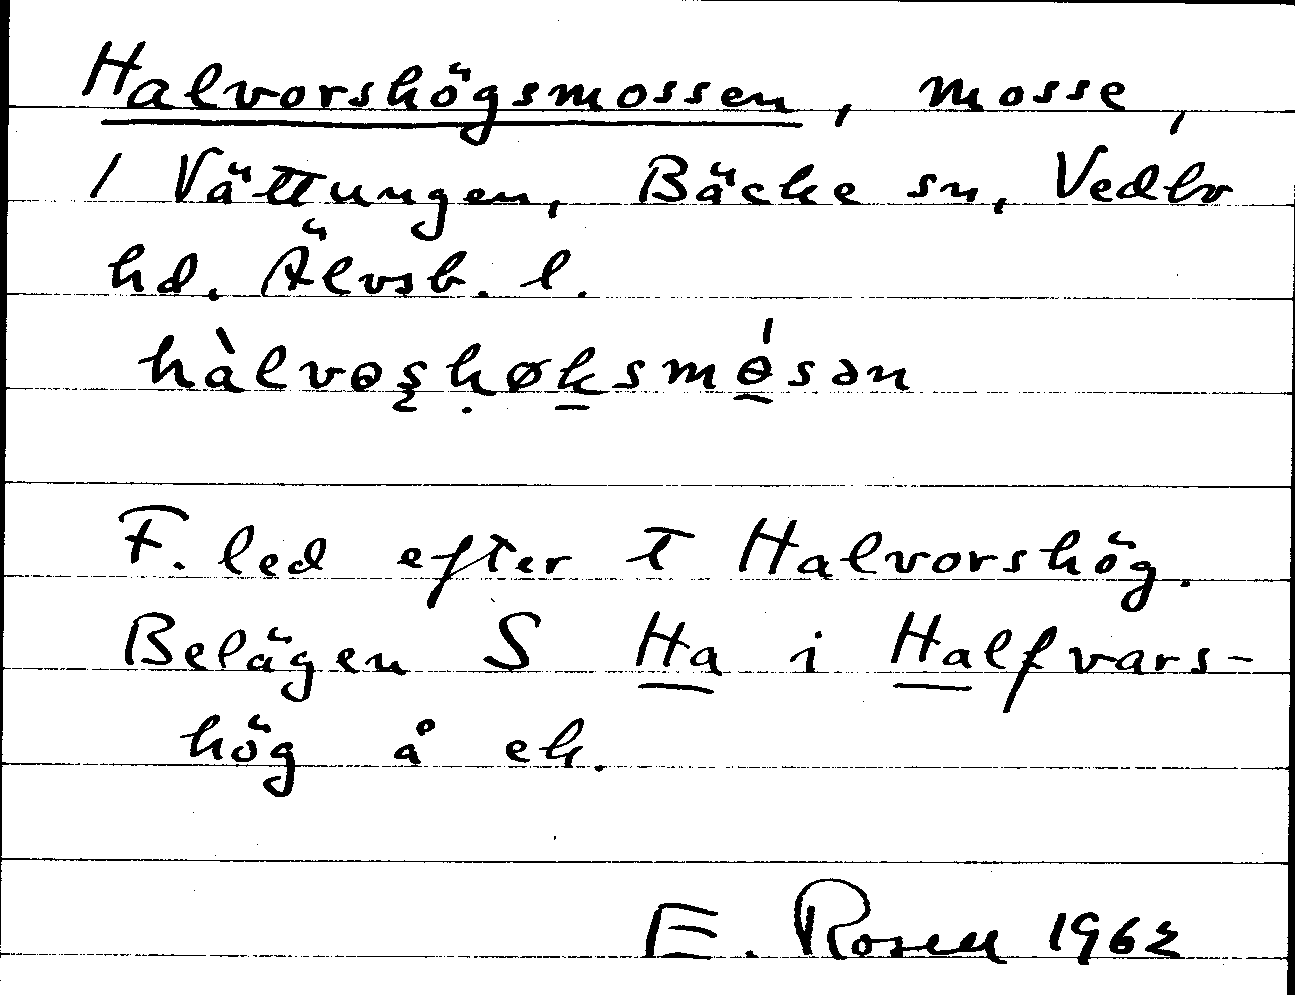 Halvorshögsmossen, mosse,
1 Vättungen, Bäcke sn, Vedbo
hd. Älvsb. l.
hàlvɵʂḥøksmɵ́sən
F. led efter t Halvorshög.
Belägen S Ha i Halfvars-
hög å ek.
E. Rosell 1962